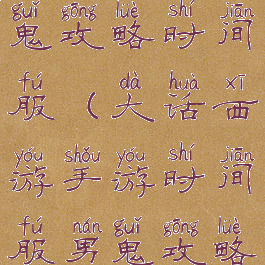 guǐ gōng lüè shí jiān
鬼攻略时间
fú dà huà xī
服(大话西
yóu shǒu yóu shí jiān
游手游时间
fú nán guǐ gōng lüè
服男鬼攻略